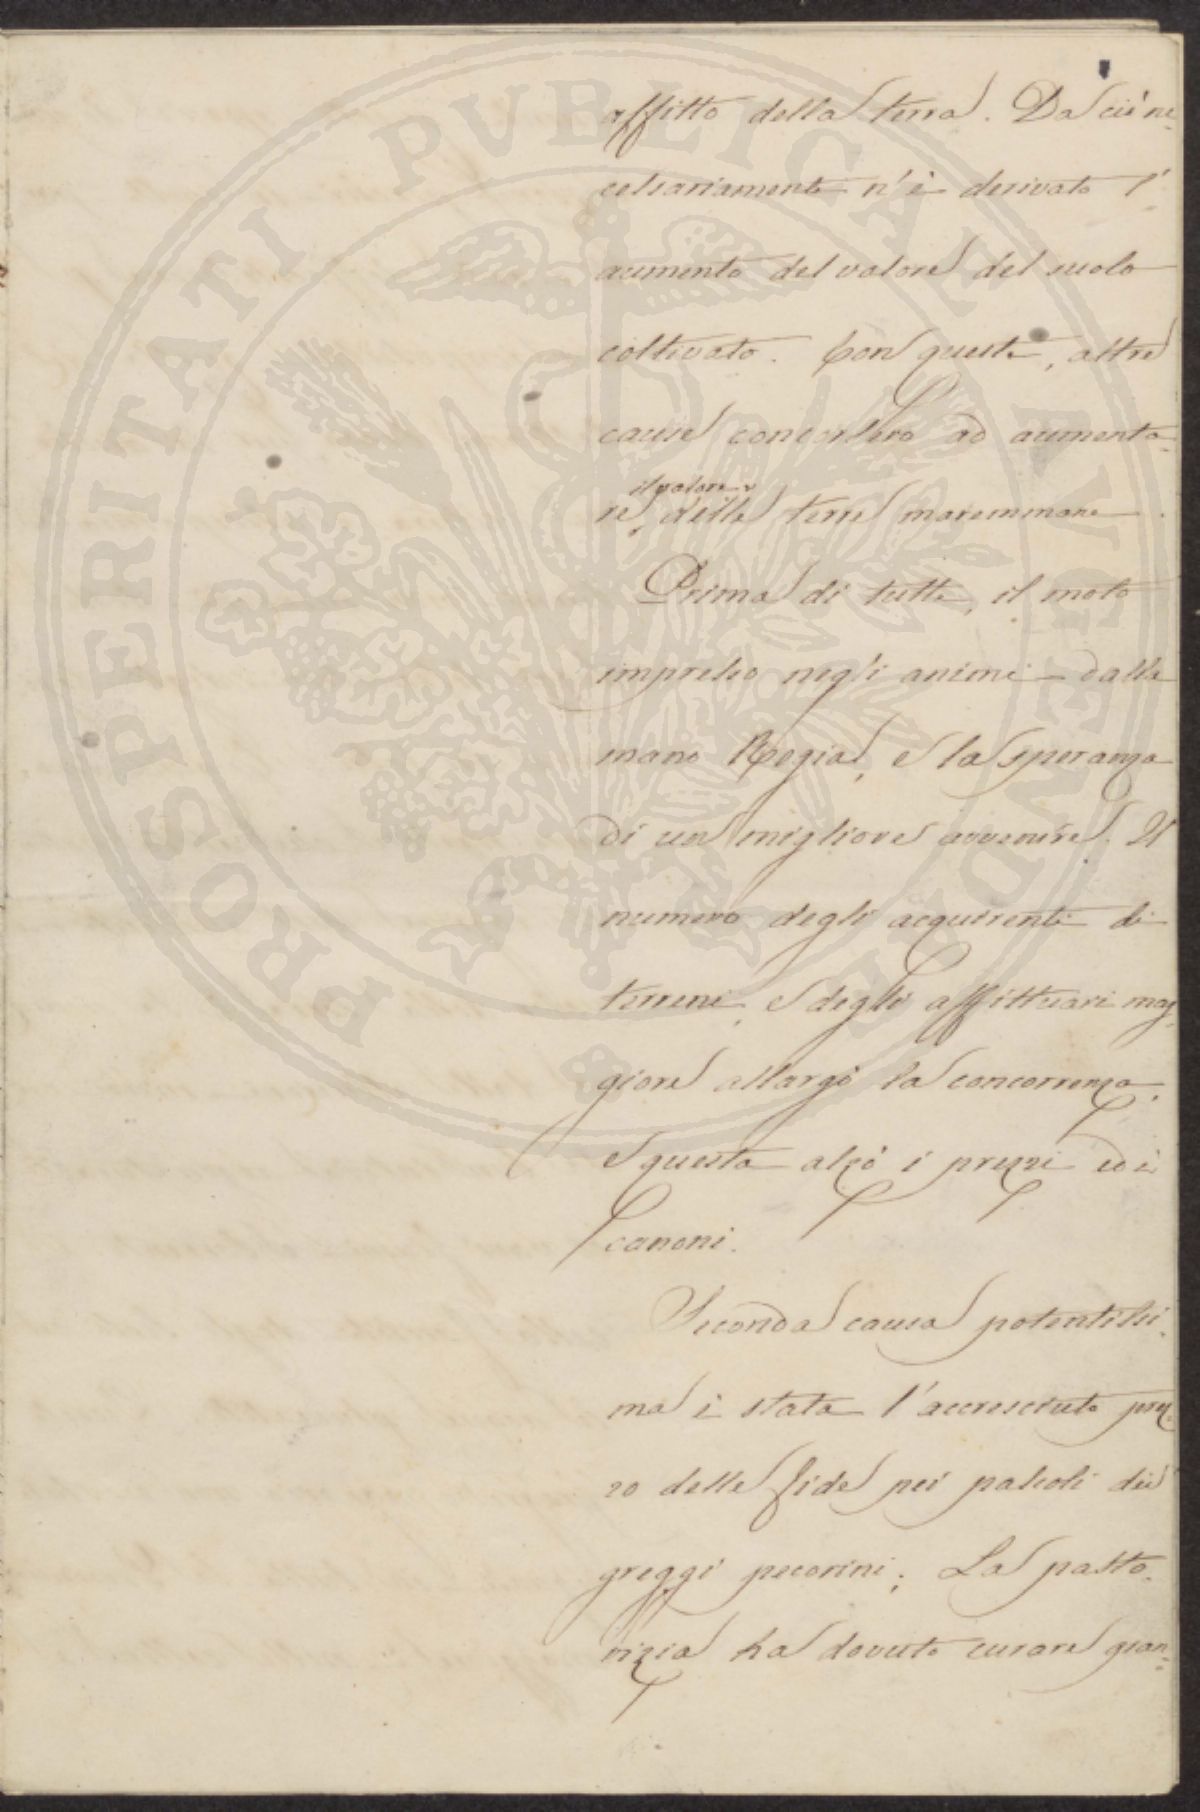 affitto della terra. Da ciò ne-
cessariamente n'è derivato l'
aumento del valore del suolo
coltivato. Con questa, altre
cause concorsero ad aumenta-
il valore
re delle terre maremmane.
Prima di tutte, il moto
impresso negli animi dalla
mano Regia, e la speranza
di un migliore avvenire. Il
numero degli acquirenti di
terreni, e degli affittuari mag-
giore allargò la concorrenza,
e questa alzò i prezzi ed i
canoni.
Seconda causa potentissi-
ma è stata l'accresciuto prez-
zo delle fide pei pascoli dei
greggi pecorini; La pasto-
rizia ha dovuto cercare
PROSPERITATI PVBLICAE AVGENDAE